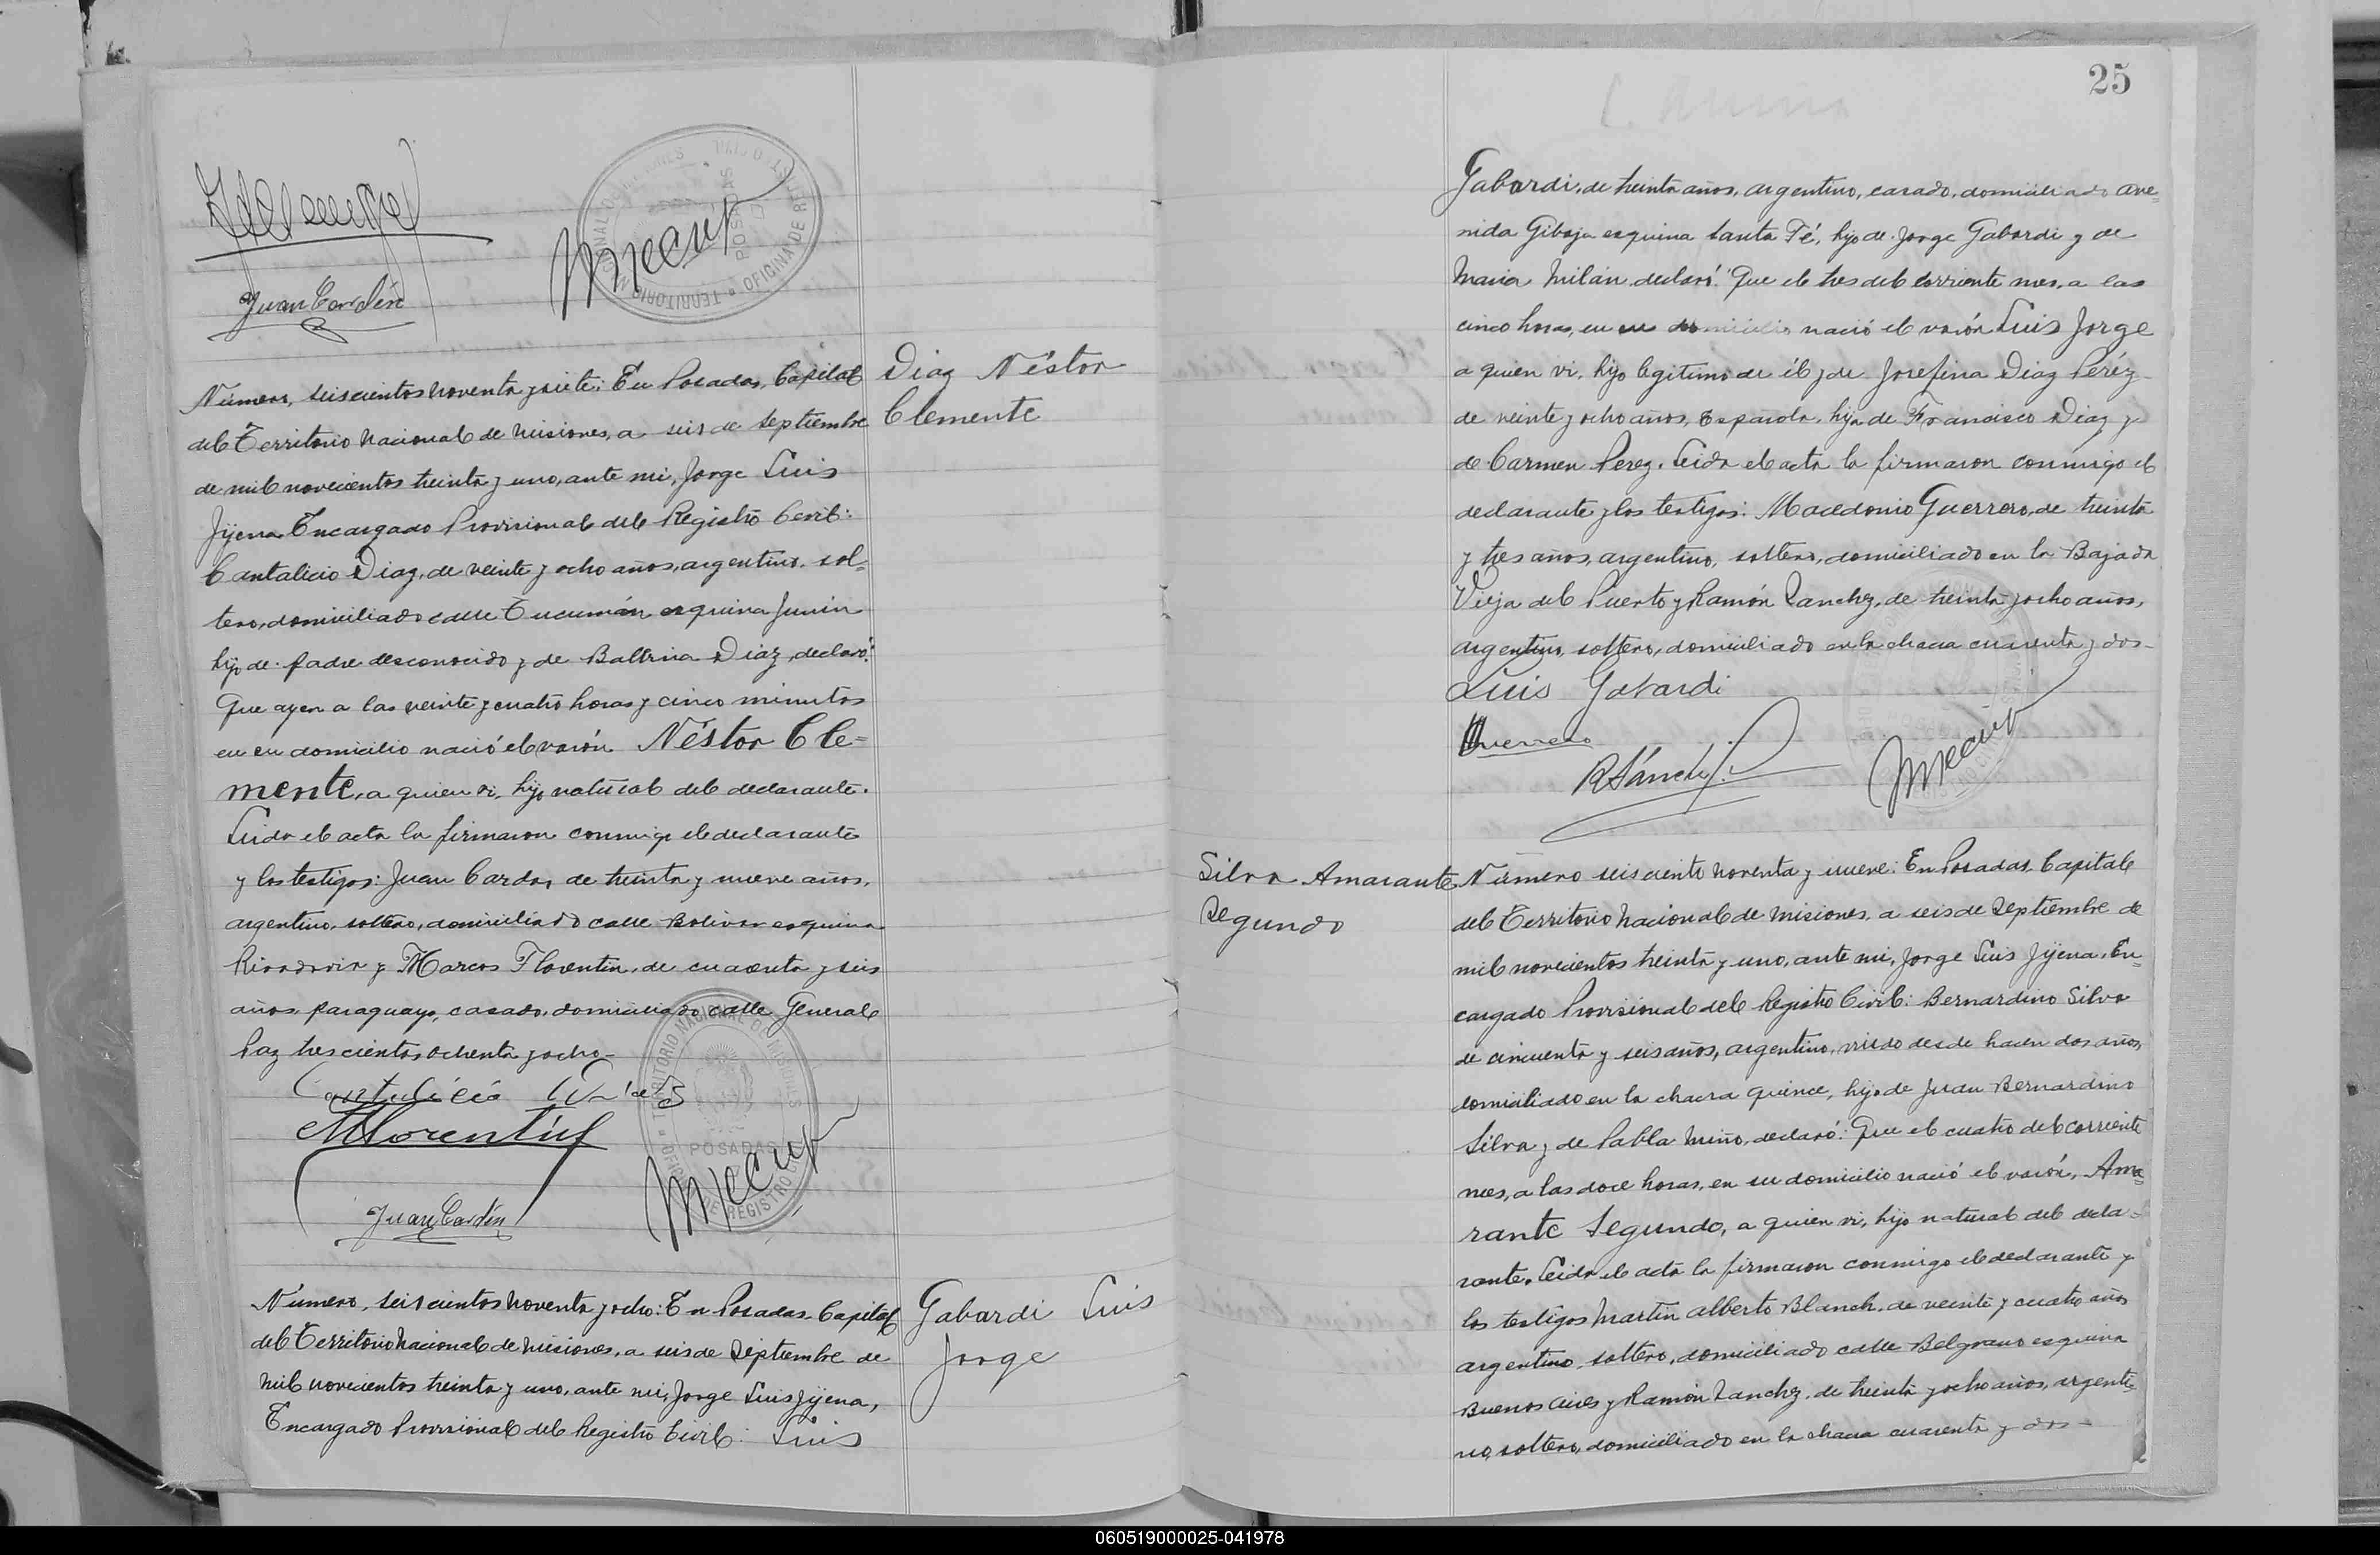 Juan Cardin
Número, seiscientos noventa y siete: En Posadas, Capital
del Territorio Nacional de Misiones, a seis de septiembre
de mil novecientos treinta y uno, ante mi, Jorge Luis
Jijena, Encargado Provisional del Registro Civil:
Cantalicio Diaz, de veinte y ocho años, argentino, sol=
tero, domiciliado calle Tucumán esquina Junin
hijo de padre desconocido y de Diaz, declaró:
Que ayer a las veinte y cuatro horas y cinco minutos
en su domicilio nació el varón Néstor Cle=
mente, a quien vi, hijo natural del declarante.
Leida el acta la firmaron conmigo el declarante
y los testigos: Juan de treinta y nueve años,
argentino, soltero, domiciliado calle Bolivar esquina
Rivadavia y Marcos Florentin, de cuarenta y seis
años, paraguayo, casado, domiciliado calle General
Paz trescientos ochenta y ocho-
Cantalicio Diaz
MFlorentin
Juan Cardin
Diaz Néstor
Clemente
TERRITORIO NACIONAL DE MISIONES
POSADAS
OFICINA DE REGISTRO CIVIL
Número, seiscientos noventa y ocho: En Posadas, Capital
del Territorio Nacional de Misiones, a seis de Septiembre de
mil novecientos treinta y uno, ante mi, Jorge Luis Jijena,
Encargado Provisional del Registro Civil: Luis
Gabardi Luis
Jorge
25
Gabardi, de treinta años, argentino, casado, domiciliado ave=
nida Giboja esquina Santa Fé, hijo de Jorge Gabardi y de
Maria Milán, declaró: Que el tres del corriente mes, a las
cinco horas, en su domicilio nació el varón Luis Jorge
a quien vi, hijo legitimo de él y de Josefina Diaz Peréz
de veinte y ocho años, Española, hija de Francisco Diaz y
de Carmen Perez. Leida el acta la firmaron conmigo el
declarante y los testigos: Macedonio Guerrero, de treinta
y tres años, argentino, soltero, domiciliado en la Bajada
Vieja del Puerto y Ramón Sanchez, de treinta y ocho años,
argentino, soltero, domiciliado en la chacra cuarenta y dos-
Luis Gabardi
Guerrero
RSánchez
Silva Amarante
Segundo
Número seisciento noventa y nueve: En Posadas, Capital
del Territorio Nacional de Misiones, a seis de Septiembre de
mil novecientos treinta y uno, ante mi, Jorge Luis Jijena, En=
cargado Provisional del Registro Civil: Bernardino Silva
de cincuenta y seis años, argentino, viudo desde hacen dos años,
domiciliado en la chacra quince, hijo de Juan Bernardino
Silva y de Pabla Miño, declaró: Que el cuatro del corriente
mes, a las doce horas, en su domicilio nació el varón, Ama=
rante Segundo, a quien vi, hijo natural del decla=
rante. Leida el acta la firmaron conmigo el declarante y
los testigos Martin Alberto Blanch, de veinte y cuatro años
argentino, soltero, domiciliado calle Belgrano esquina
Buenos Aires y Ramón Sanchez, de treinta y ocho años, argenti=
no, soltero, domiciliado en la chacra cuarenta y dos-
060519000025-041978